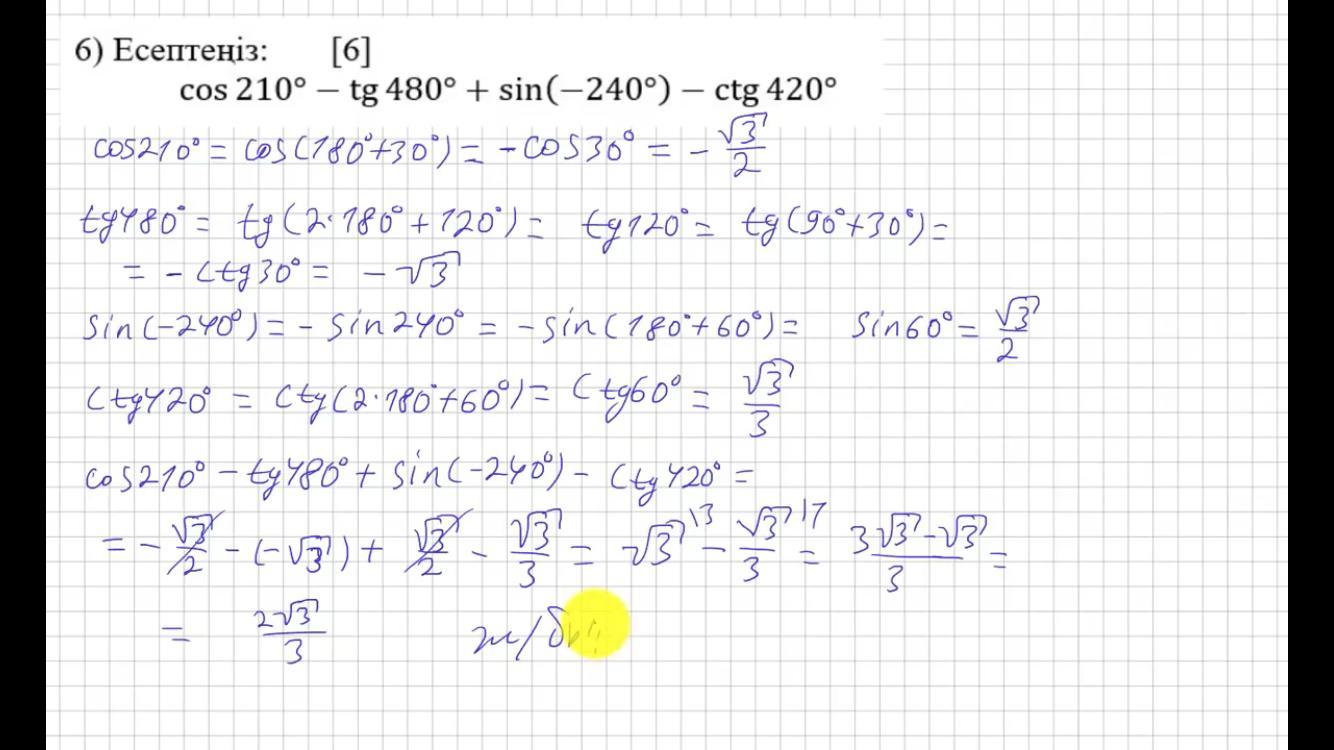 6) Есептеңіз: [6]
cos 210° − tg 480° + sin(−240°) − ctg 420°
cos210° = cos(180°+30°) = -cos30° = - √3/2
tg480° = tg(2·180° + 120°) = tg120° = tg(90°+30°) =
= - ctg30° = - √3
sin(-240°) = - sin240° = - sin(180°+60°) = sin60° = √3/2
ctg420° = ctg(2·180°+60°) = ctg60° = √3/3
cos210° - tg480° + sin(-240°) - ctg420° =
= - √3/2 - (-√3) + √3/2 - √3/3 = √3 \3 - √3/3 \1 = 3√3 - √3/3 =
= 2√3/3